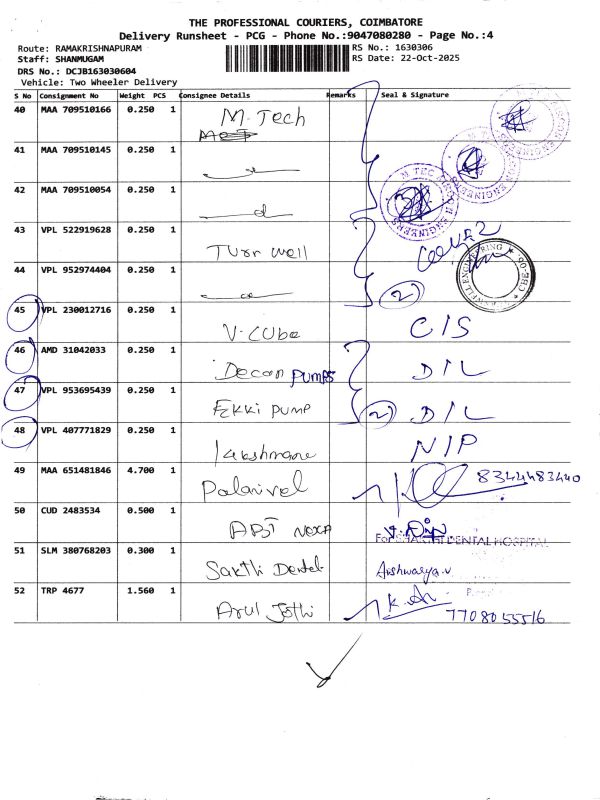 THE PROFESSIONAL COURIERS, COIMBATORE
Delivery Runsheet - PCG - Phone No.:9047080280 - Page No.:4
Route: RAMAKRISHNAPURAM RS No.: 1630306
Staff: SHANMUGAM RS Date: 22-Oct-2025
DRS No.: DCJB163030604
Vehicle: Two Wheeler Delivery
S No Consignment No Weight PCS Consignee Details Remarks Seal & Signature
40 MAA 709510166 0.250 1 M-Tech
41 MAA 709510145 0.250 1
42 MAA 709510054 0.250 1
43 VPL 522919628 0.250 1 Turr well
44 VPL 952974404 0.250 1 2
45 VPL 230012716 0.250 1 V-CUbe C/S
46 AMD 31042033 0.250 1 Decan PUMPS D/L
47 VPL 953695439 0.250 1 Ekki PUMP 2 D/L
48 VPL 407771829 0.250 1 N/P
49 MAA 651481846 4.700 1 Palanivel 8344483440
50 CUD 2483534 0.500 1 ABT NEXA
For SHAKTHI DENTAL HOSPITAL
51 SLM 380768203 0.300 1 Sakthi Dental Aishwarya.v
52 TRP 4677 1.560 1 Arul Jothi 7708055516